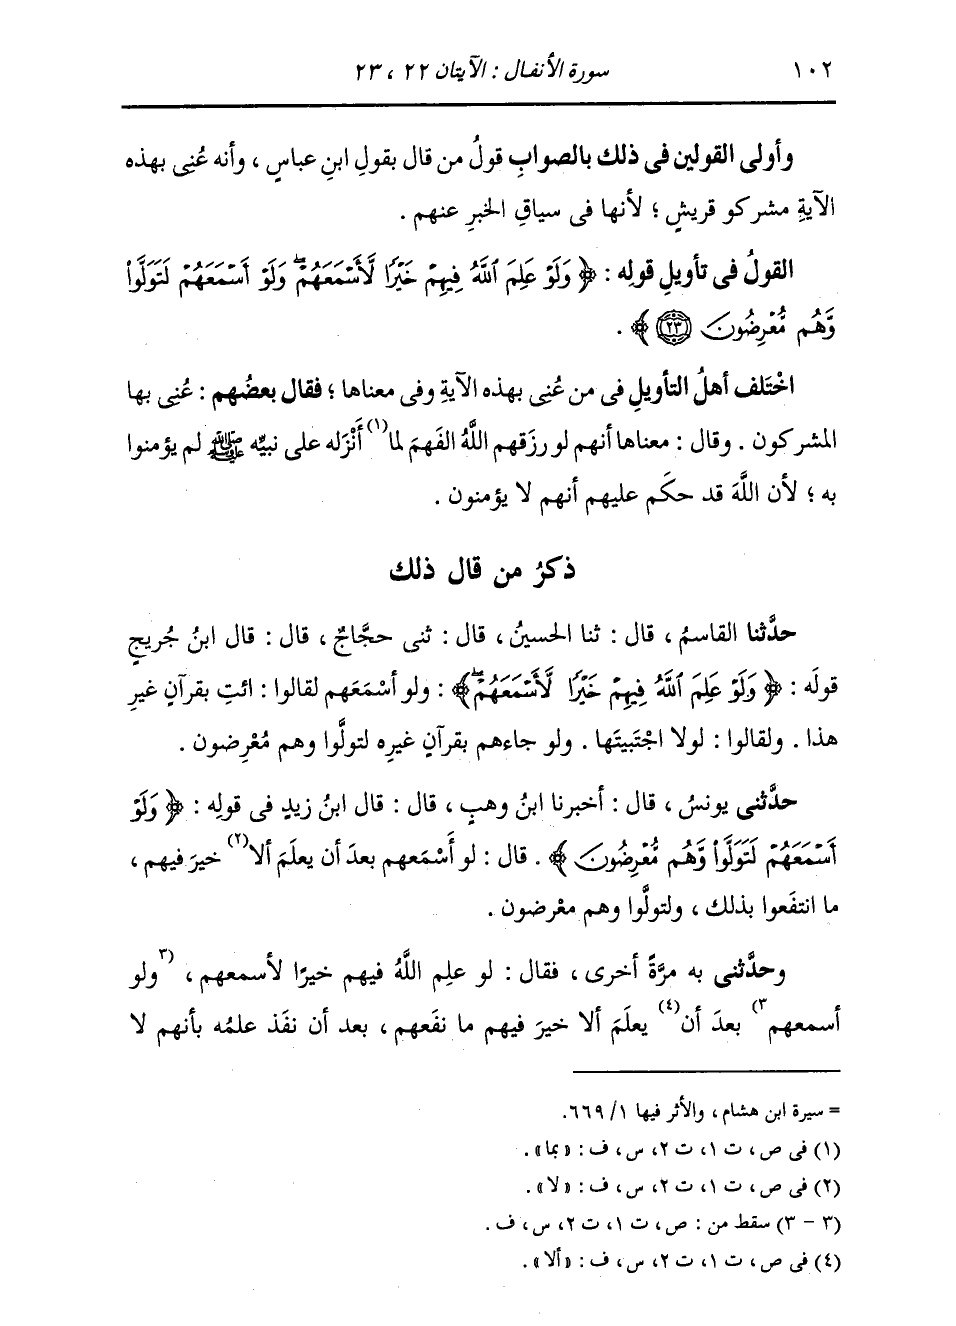 ١٠٢ سورة الأنفال : الآيتان ٢٢ ، ٢٣
وأولى القولين فى ذلك بالصوابِ قولُ من قال بقولِ ابنِ عباسٍ ، وأنه عُنِى بهذه
الآيةِ مشركو قريشٍ ؛ لأنها فى سياقِ الخبرِ عنهم .
القولُ فى تأويلِ قولِه : ﴿ وَلَوْ عَلِمَ ٱللَّهُ فِيهِمْ خَيْرًا لَّأَسْمَعَهُمْ ۖ وَلَوْ أَسْمَعَهُمْ لَتَوَلَّوا۟
وَّهُم مُّعْرِضُونَ ٢٣ ﴾ .
اخْتَلف أهلُ التأويلِ فى من عُنِى بهذه الآيةِ وفى معناها ؛ فقال بعضُهم : عُنِى بها
المشركون . وقال : معناها أنهم لو رزَقهم اللَّهُ الفَهمَ لما(١) أَنْزَله على نبيِّه ﷺ لم يؤمنوا
به ؛ لأن اللَّهَ قد حكَم عليهم أنهم لا يؤمنون .
ذكرُ من قال ذلك
حدَّثنا القاسمُ ، قال : ثنا الحسينُ ، قال : ثنى حجَّاجٌ ، قال : قال ابنُ جُريجٍ
قولَه : ﴿ وَلَوْ عَلِمَ ٱللَّهُ فِيهِمْ خَيْرًا لَّأَسْمَعَهُمْ ۖ ﴾ : ولو أسْمَعَهم لقالوا : ائتِ بقرآنٍ غيرِ
هذا . ولقالوا : لولا اجْتَبيتَها . ولو جاءهم بقرآنٍ غيرِه لتولَّوا وهم مُعْرِضون .
حدَّثنى يونسُ ، قال : أخبرنا ابنُ وهبٍ ، قال : قال ابنُ زيدٍ فى قولِه : ﴿ وَلَوْ
أَسْمَعَهُمْ لَتَوَلَّوا۟ وَّهُم مُّعْرِضُونَ ﴾ . قال : لو أَسْمَعهم بعدَ أن يعلَمَ ألا(٢) خيرَ فيهم ،
ما انتفَعوا بذلك ، ولتولَّوا وهم معْرضون .
وحدَّثنى به مرَّةً أخرى ، فقال : لو علِم اللَّهُ فيهم خيرًا لأسمعهم ، (٣ولو
أسمعهم٣) بعدَ أن(٤) يعلَمَ ألا خيرَ فيهم ما نفَعهم ، بعد أن نفَذ علمُه بأنهم لا
= سيرة ابن هشام ، والأثر فيها ١/ ٦٦٩.
(١) فى ص ، ت ١، ت ٢، س ، ف : «بما» .
(٢) فى ص ، ت ١، ت ٢، س ، ف : «لا» .
(٣ - ٣) سقط من : ص ، ت ١، ت ٢، س ، ف .
(٤) فى ص ، ت ١، ت ٢، س ، ف : «ألا» .